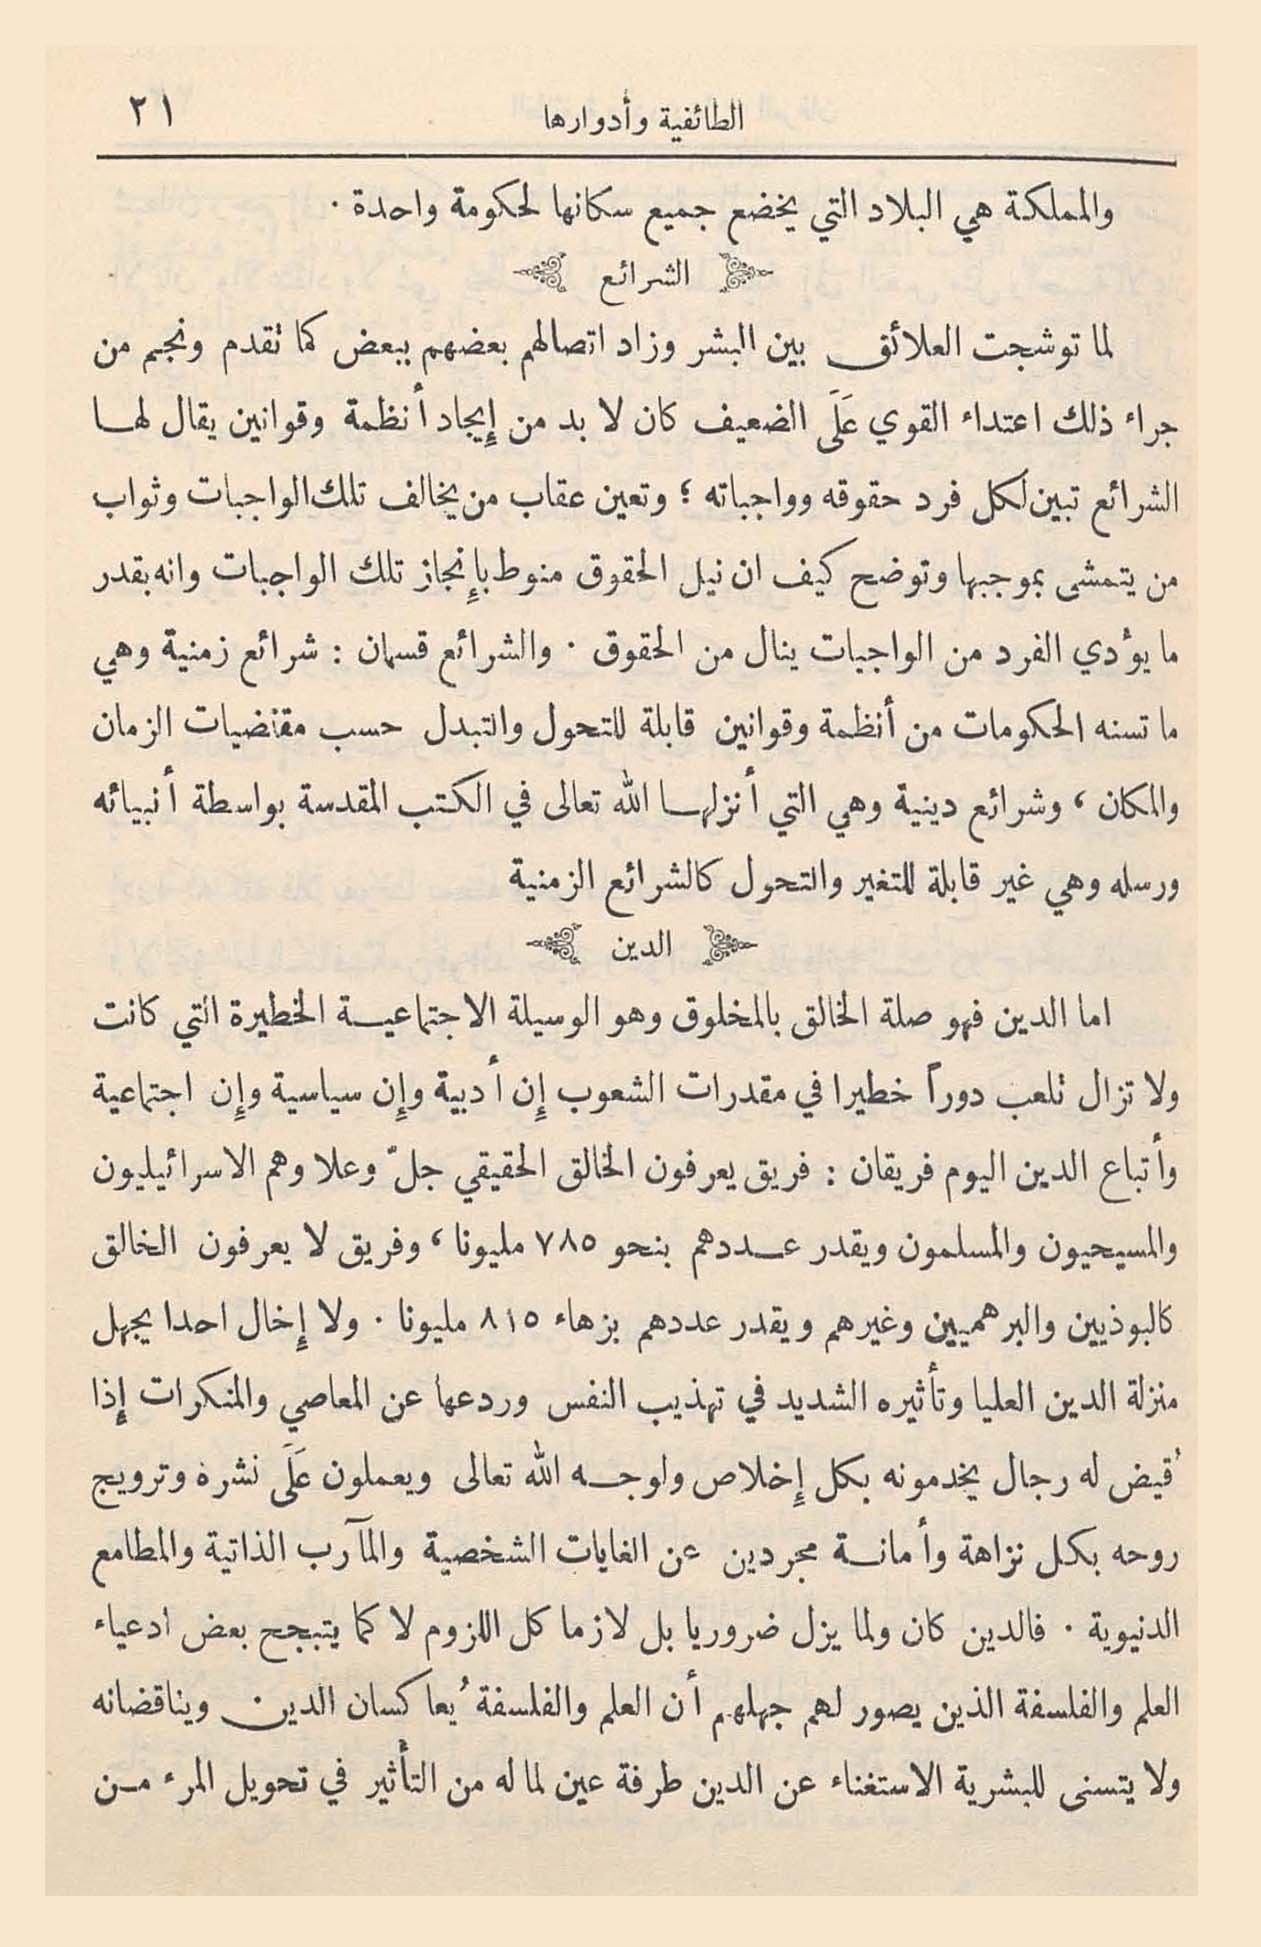 الطائفية وأدوارها ٢١
والمملكة هي البلاد التي يخضع جميع سكانها لحكومة واحدة ٠
الشرائع
لما توشجت العلائق بين البشر وزاد اتصالهم بعضهم ببعض كما تقدم ونجم من
جراء ذلك اعتداء القوي عَلَى الضعيف كان لا بد من إيجاد أنظمة وقوانين يقال لهـا
الشرائع تبين لكل فرد حقوقه وواجباته ؛ وتعين عقاب من يخالف تلك الواجبات وثواب
من يتمشى بموجبها وتوضح كيف ان نيل الحقوق منوط بإنجاز تلك الواجبات وانه بقدر
ما يؤدي الفرد من الواجبات ينال من الحقوق ٠ والشرائع قسمان : شرائع زمنية وهي
ما تسنه الحكومات من أنظمة وقوانين قابلة للتحول والتبدل حسب مقتضيات الزمان
والمكان ، وشرائع دينية وهي التي أنزلهـا الله تعالى في الكتب المقدسة بواسطة أنبيائه
ورسله وهي غير قابلة للتغير والتحول كالشرائع الزمنية
الدين
اما الدين فهو صلة الخالق بالمخلوق وهو الوسيلة الاجتماعيـة الخطيرة التي كانت
ولا تزال تلعب دوراً خطيرا في مقدرات الشعوب إن أدبية وإن سياسية وإن اجتماعية
وأتباع الدين اليوم فريقان : فريق يعرفون الخالق الحقيقي جلّ وعلا وهم الاسرائيليون
والمسيحيون والمسلمون ويقدر عـددهم بنحو ٧٨٥ مليونا ، وفريق لا يعرفون الخالق
كالبوذيين والبرهميين وغيرهم ويقدر عددهم بزهاء ٨١٥ مليونا ٠ ولا إخال احدا يجهل
منزلة الدين العليا وتأثيره الشديد في تهذيب النفس وردعها عن المعاصي والمنكرات إذا
قُيض له رجال يخدمونه بكل إخلاص ولوجـه الله تعالى ويعملون عَلَى نشره وترويج
روحه بكل نزاهة وأمانـة مجردين عن الغايات الشخصية والمآرب الذاتية والمطامع
الدنيوية ٠ فالدين كان ولما يزل ضروريا بل لازما كل اللزوم لا كما يتبجح بعض ادعياء
العلم والفلسفة الذين يصور لهم جهلهم أن العلم والفلسفة يُعاكسان الدين ويناقضانه
ولا يتسنى للبشرية الاستغناء عن الدين طرفة عين لما له من التأثير في تحويل المرء مـن